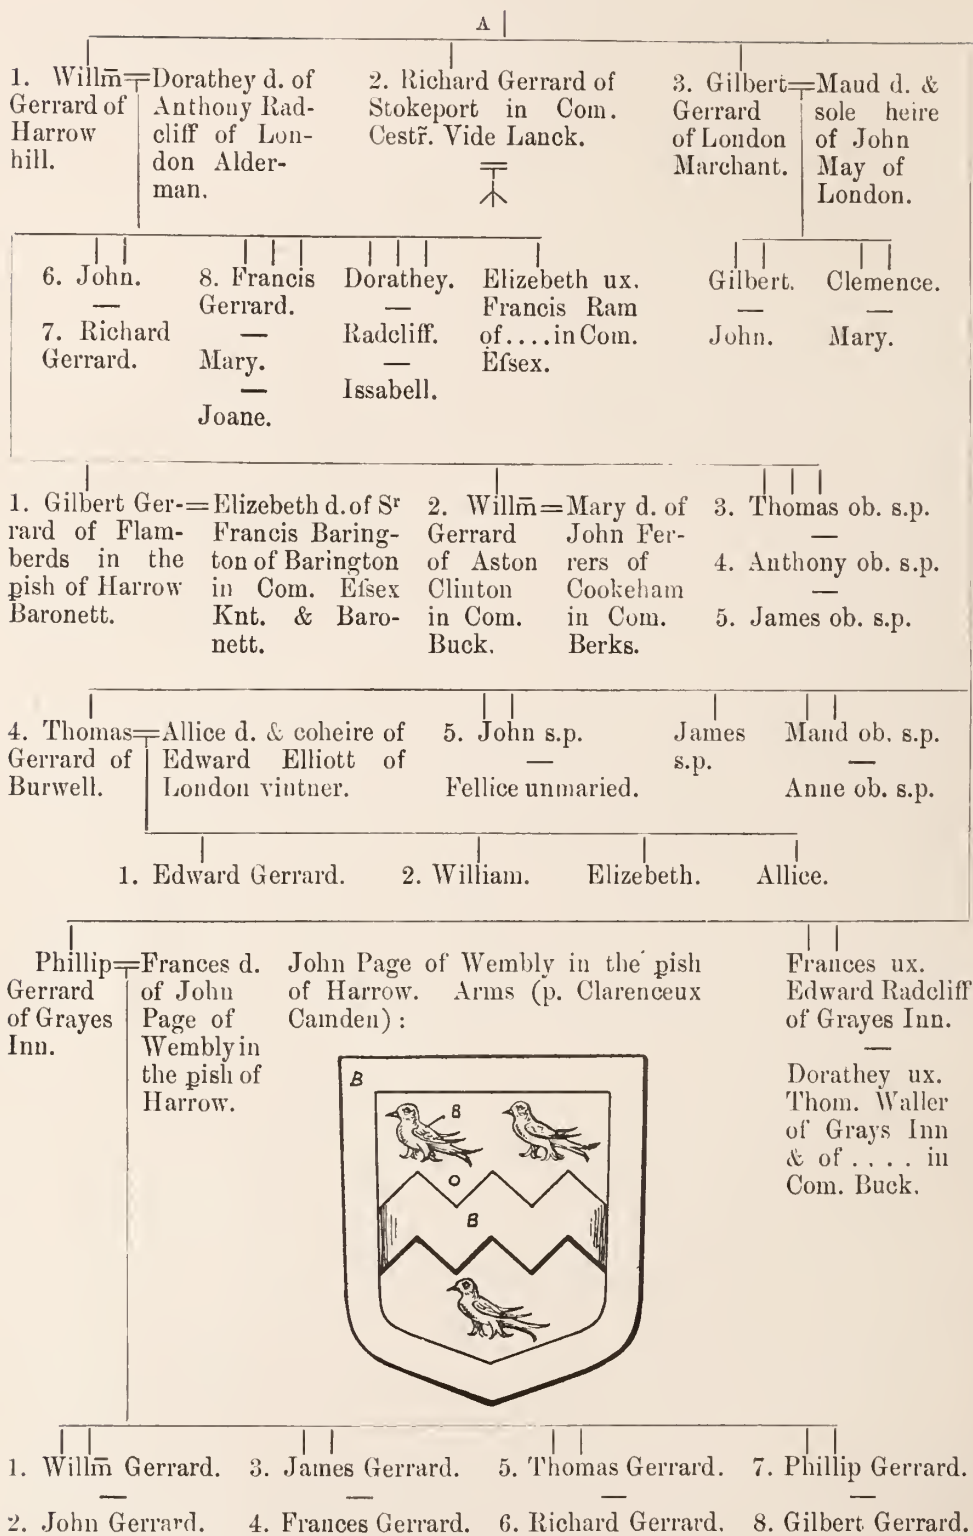 A
1. Willm̄
Gerrard of
Harrow
hill.
Dorathey d. of
Anthony Rad-
cliff of Lon-
don Alder-
man.
2. Richard Gerrard of
Stokeport in Com.
Cestr̃. Vide Lanck.
3. Gilbert
Gerrard
of London
Marchant.
Maud d. &
sole heire
of John
May of
London.
6. John.
—
7. Richard
Gerrard.
8. Francis
Gerrard.
—
Mary.
—
Joane.
Dorathey.
—
Radcliff.
—
Issabell.
Elizebeth ux.
Francis Ram
of....in Com.
Eſsex.
Gilbert.
—
John.
Clemence.
—
Mary.
1. Gilbert Ger-
rard of Flam-
berds in the
pish of Harrow
Baronett.
=Elizebeth d. of Sʳ
Francis Baring-
ton of Barington
in Com. Eſsex
Knt. & Baro-
nett.
2. Willm̄
Gerrard
of Aston
Clinton
in Com.
Buck.
=Mary d. of
John Fer-
rers of
Cookeham
in Com.
Berks.
3. Thomas ob. s.p.
—
4. Anthony ob. s.p.
—
5. James ob. s.p.
4. Thomas
Gerrard of
Burwell.
Allice d. & coheire of
Edward Elliott of
London vintner.
5. John s.p.
—
Fellice unmaried.
James
s.p.
Maud ob. s.p.
—
Anne ob. s.p.
1. Edward Gerrard.
2. William.
Elizebeth.
Allice.
Phillip
Gerrard
of Grayes
Inn.
Frances d.
of John
Page of
Wembly in
the pish of
Harrow.
John Page of Wembly in the pish
of Harrow. Arms (p. Clarenceux
Camden) :
B
B
O
B
Frances ux.
Edward Radcliff
of Grayes Inn.
—
Dorathey ux.
Thom. Waller
of Grays Inn
& of .... in
Com. Buck.
1. Willm̄ Gerrard.
—
2. John Gerrard.
3. James Gerrard.
—
4. Frances Gerrard.
5. Thomas Gerrard.
—
6. Richard Gerrard.
7. Phillip Gerrard.
—
8. Gilbert Gerrard.